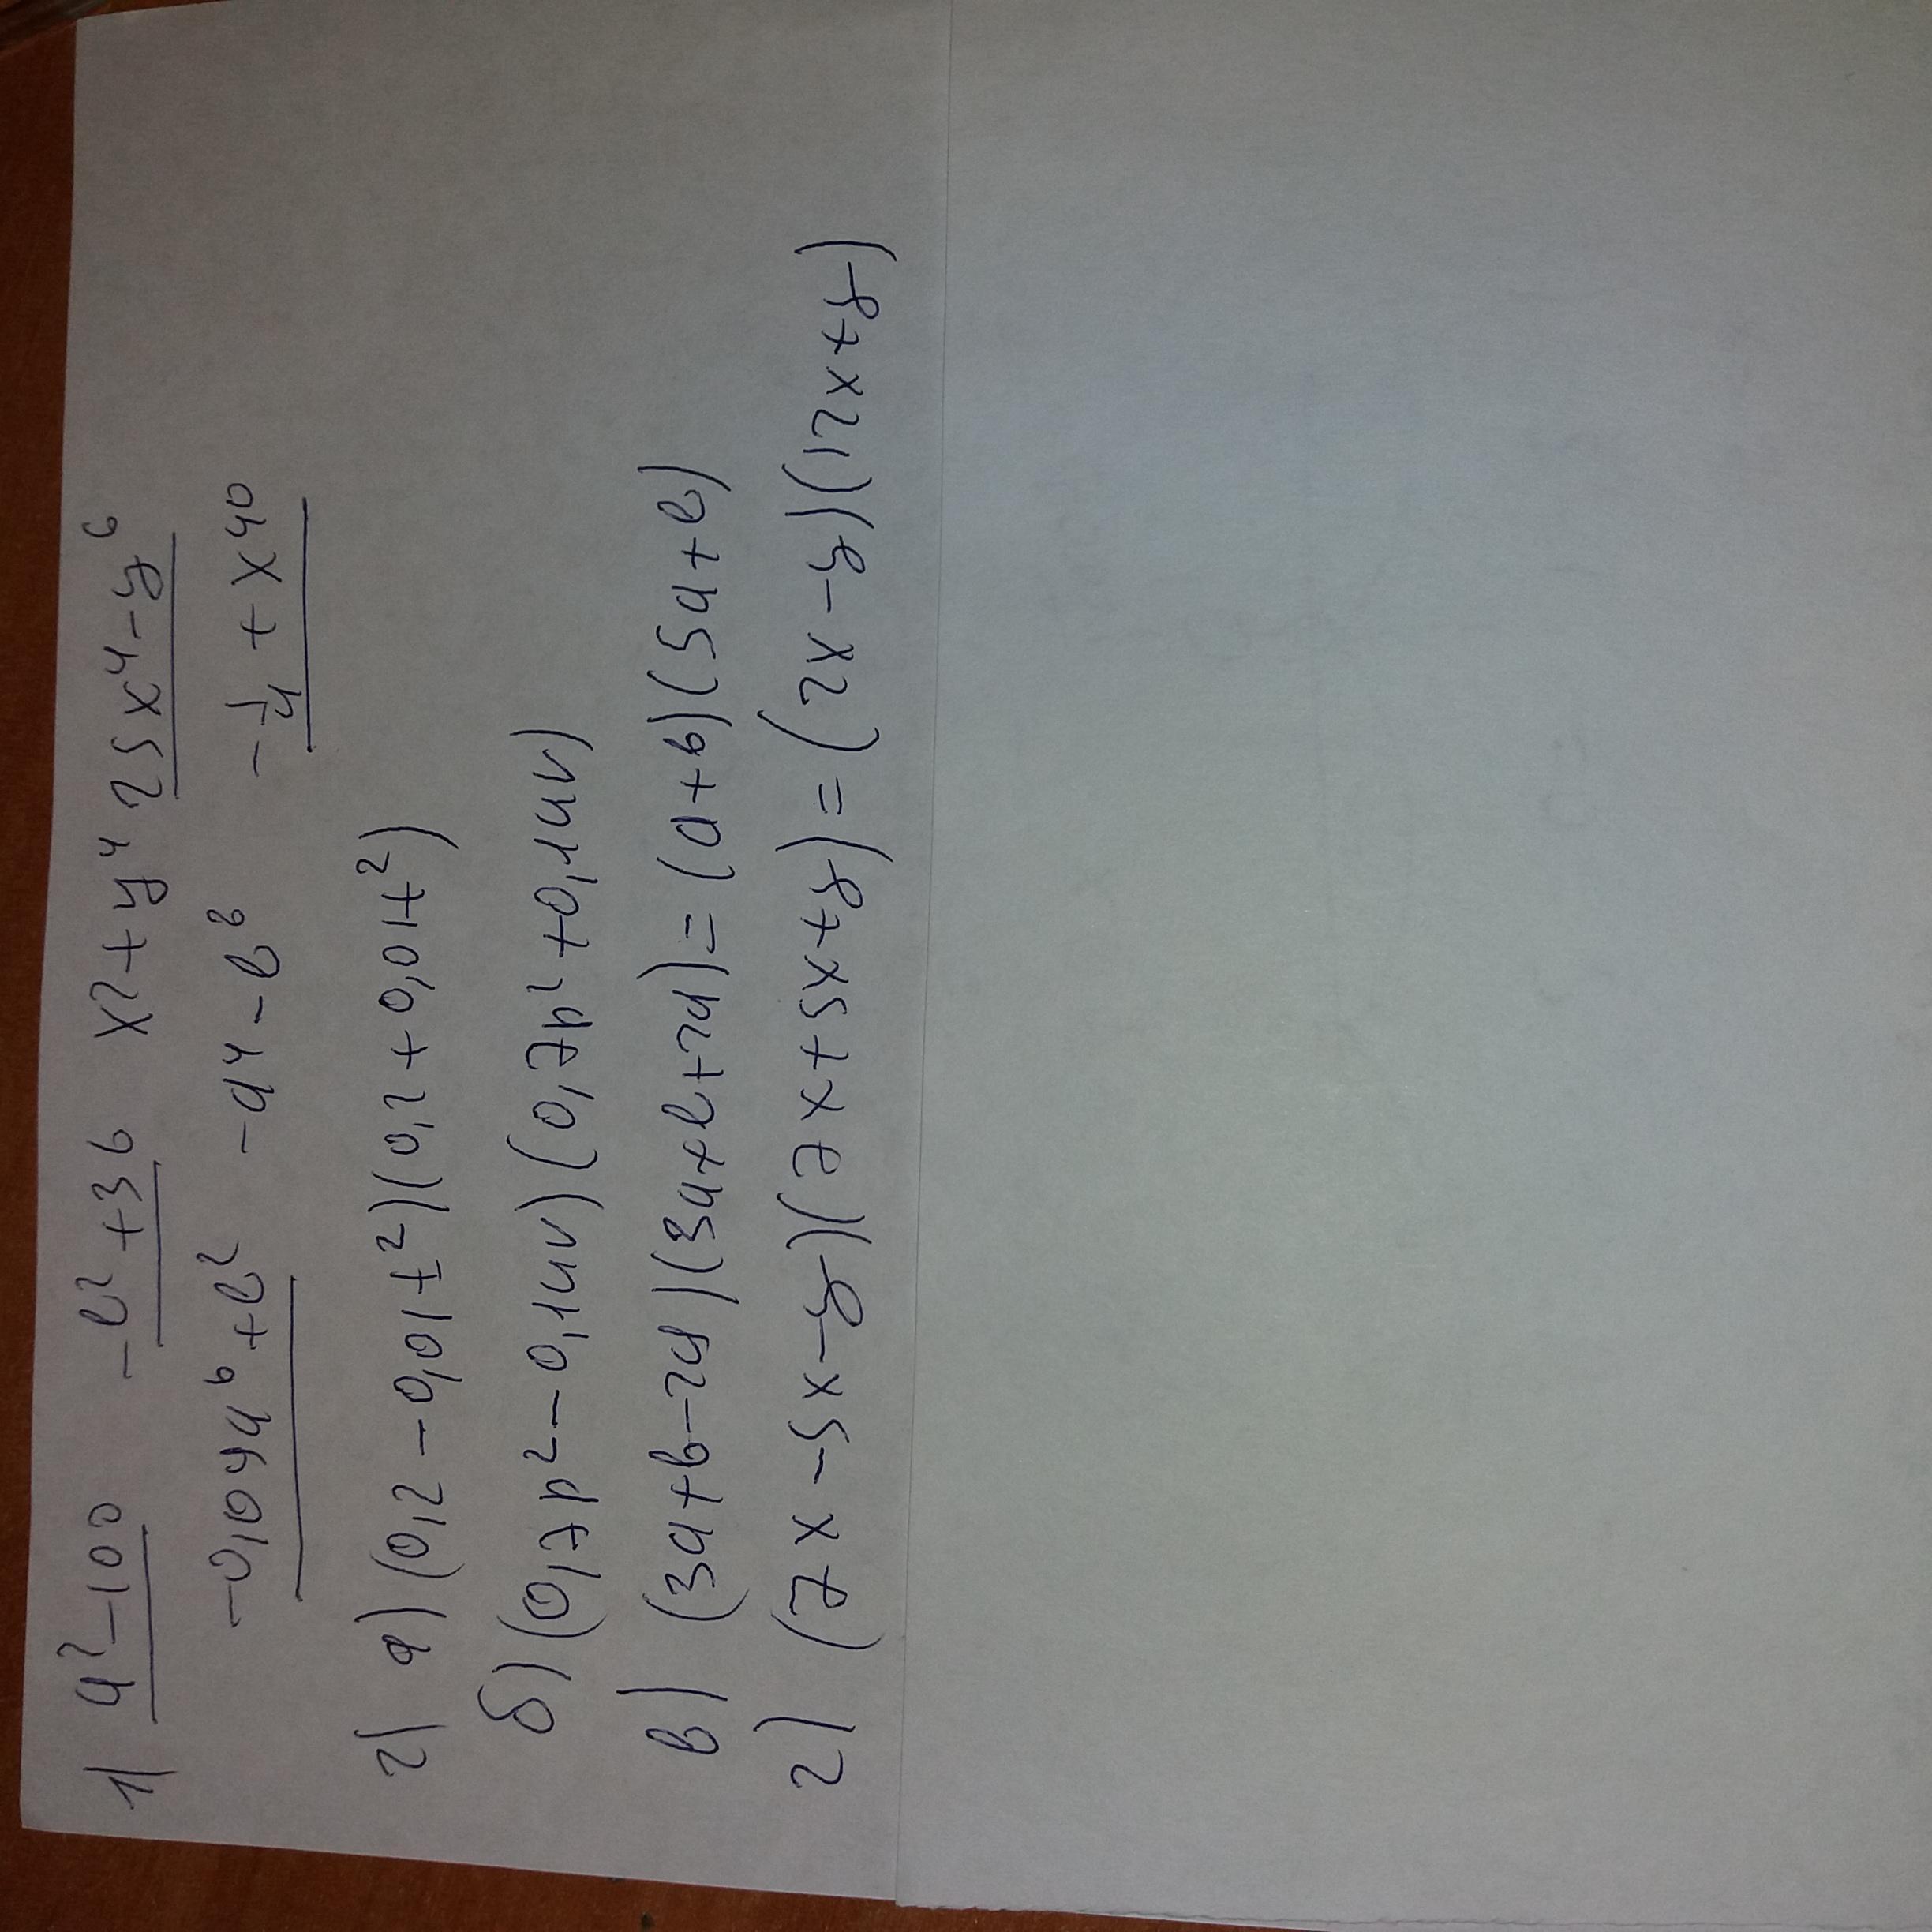 1) a² - 100 - b² + 36 x² + y⁴ 25x⁴ - y⁶
-0,04a⁶ + b² - a⁴ - b⁸ - 1/4 + x⁴⁰
2) а) (0,2 - 0,01t²)(0,2 + 0,01t²)
б) (0,7p² - 0,1uv)(0,7p² + 0,1uv)
в) (3a + b - 2a)(3a + b + 2a) = (a + b)(5a + b)
г) (7x - 5x - y)(7x + 5x + y) = (2x - y)(12x + y)